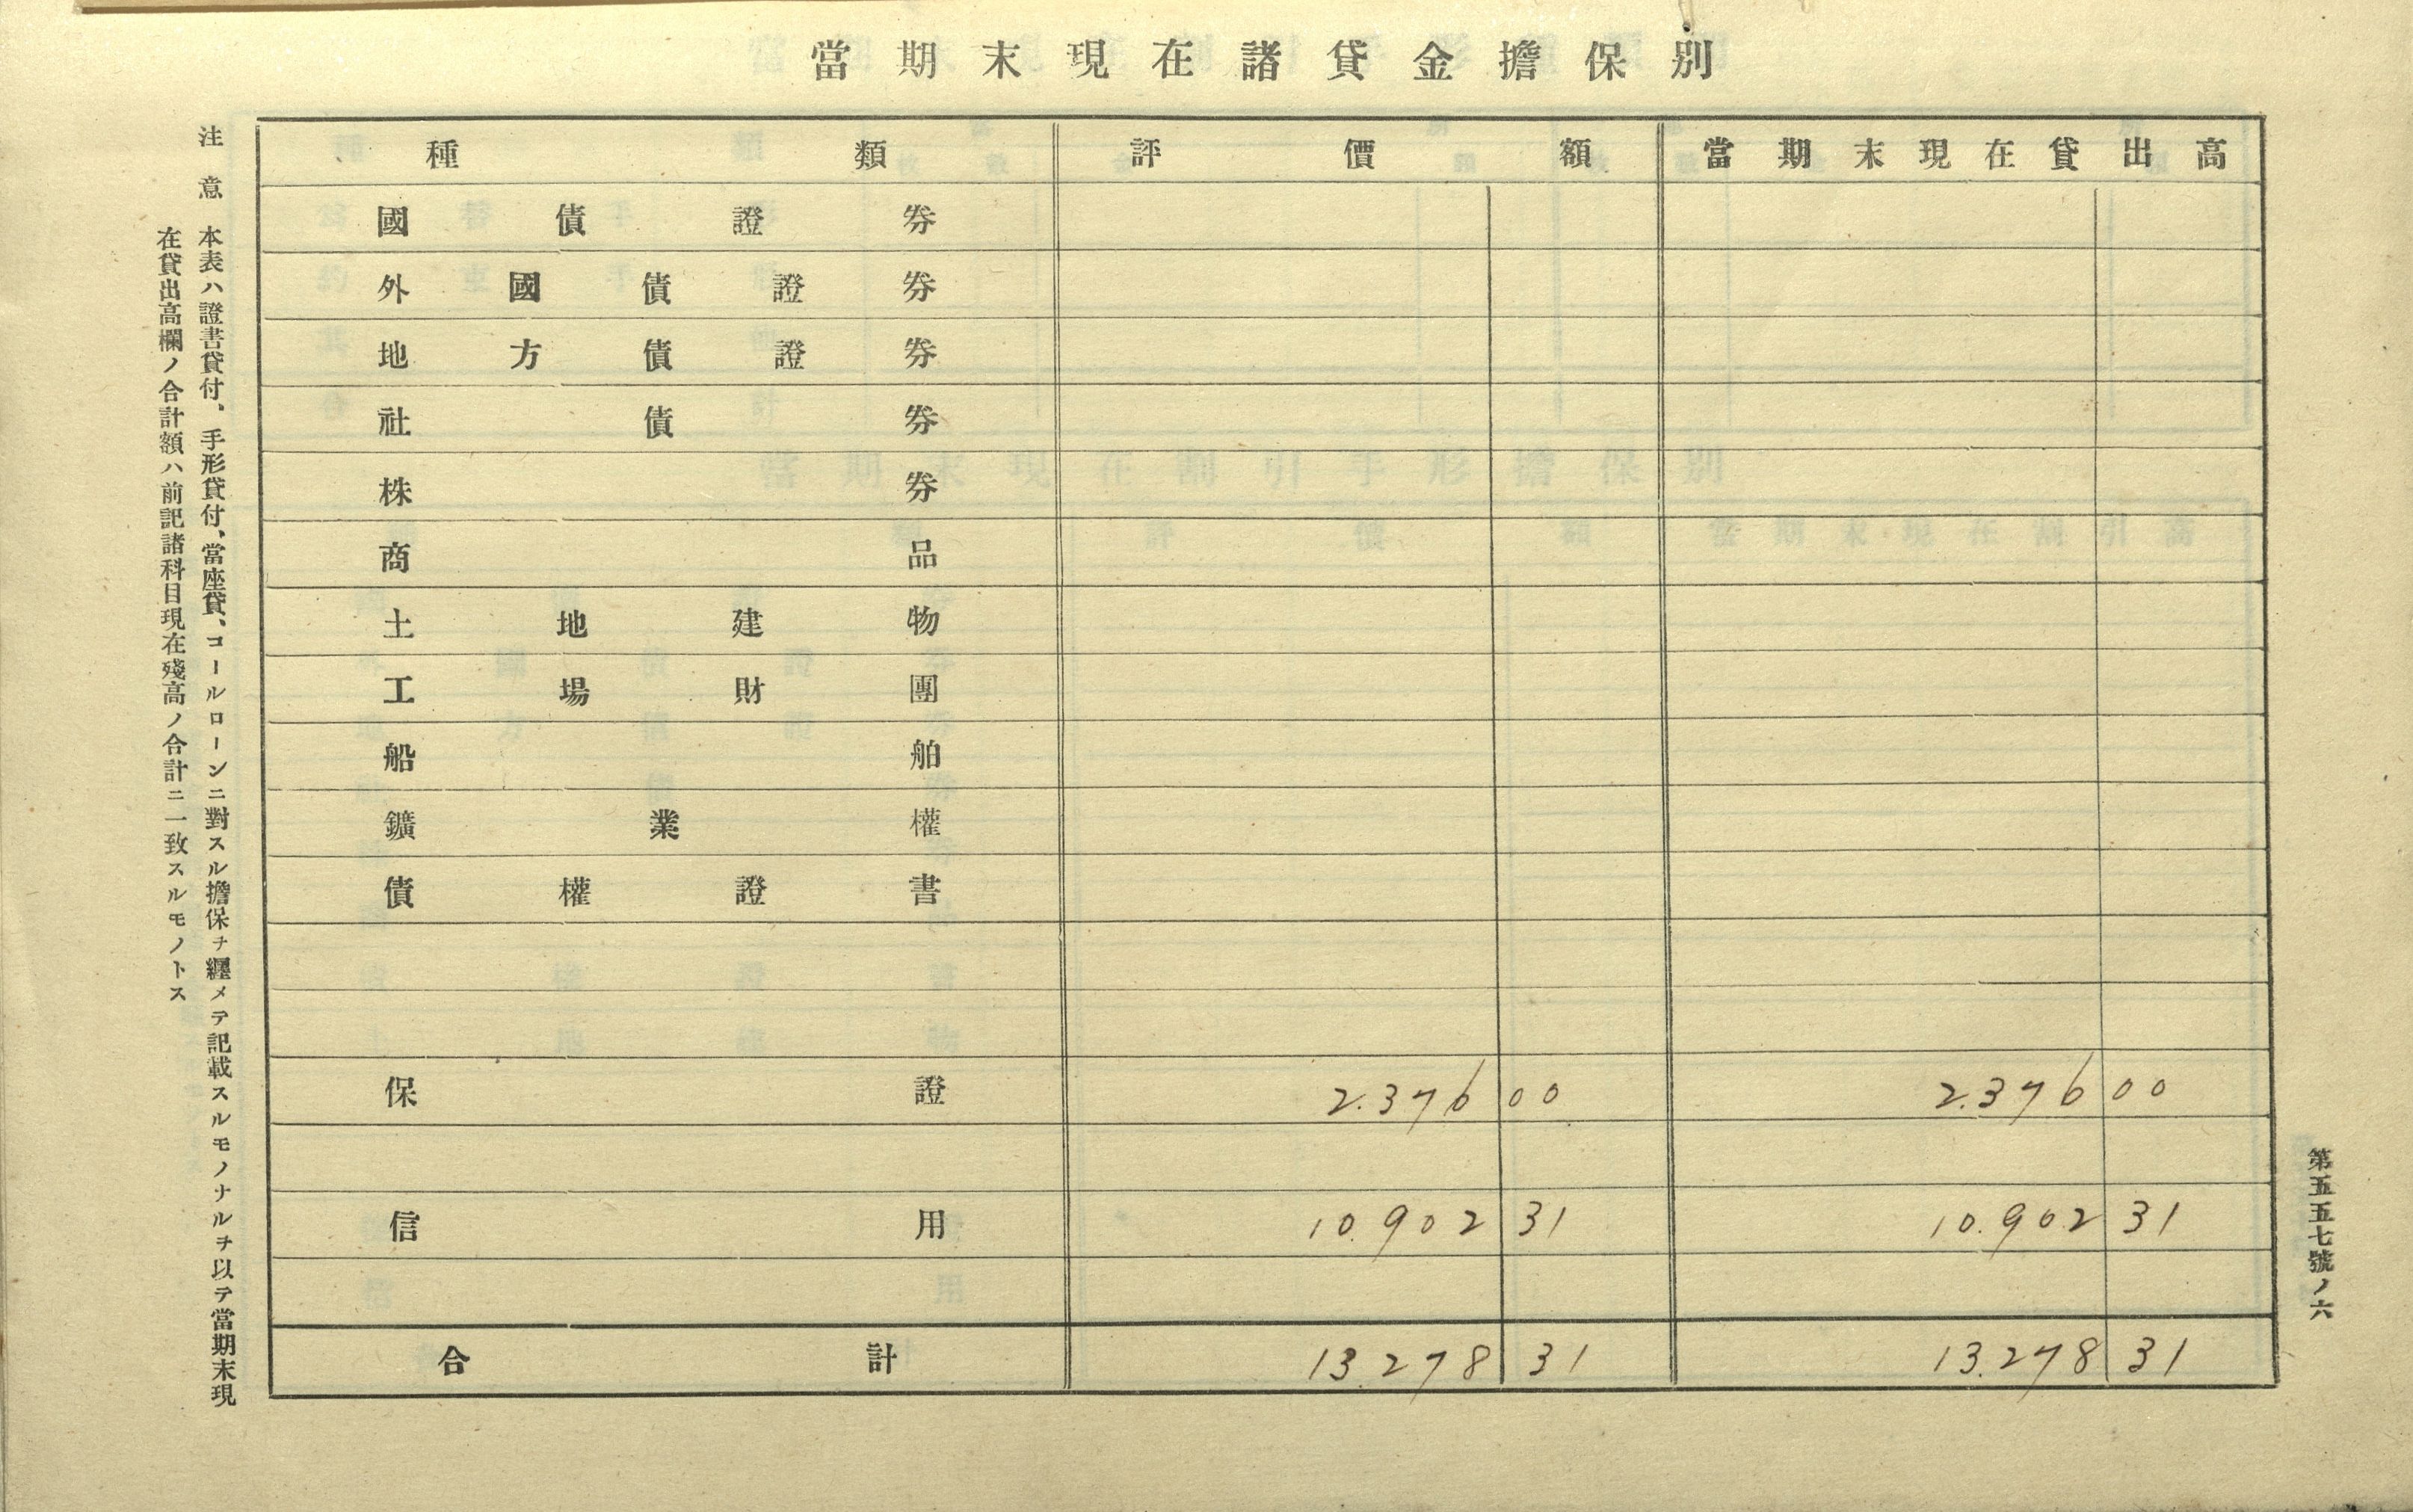 當期末現在諸貸金擔保別
種類 評價額 當期末現在貸出高
國債證券
外國債證券
地方債證券
社債券
株券
商品
土地建物
工場財團
船舶
鑛業權
債權證書
保證 2.376 00 2.376 00
信用 10.902 31 10.902 31
合計 13.278 31 13.278 31
注意
本表ハ證書貸付、手形貸付、當座貸、コールローンニ對スル擔保ヲ纒メテ記載スルモノナルヲ以テ當期末現
在貸出高欄ノ合計額ハ前記諸科目現在殘高ノ合計ニ一致スルモノトス
第五五七號ノ六